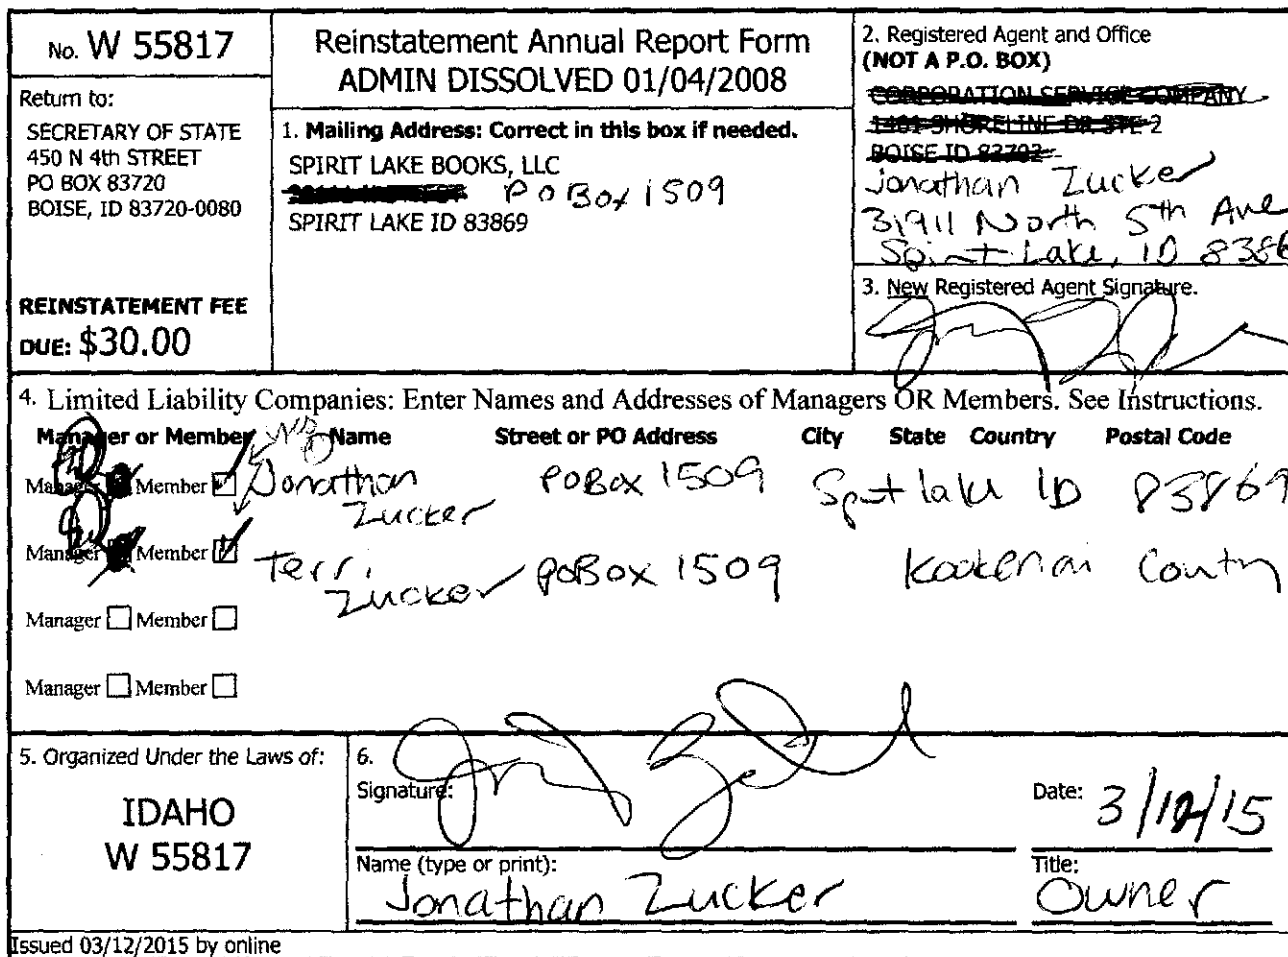 No. W 55817
Return to:
SECRETARY OF STATE
450 N 4th STREET
PO BOX 83720
BOISE, ID 83720-0080
REINSTATEMENT FEE
DUE: $30.00
Reinstatement Annual Report Form
ADMIN DISSOLVED 01/04/2008
1. Mailing Address: Correct in this box if needed.
SPIRIT LAKE BOOKS, LLC
PO Box 1509
SPIRIT LAKE ID 83869
2. Registered Agent and Office
(NOT A P.O. BOX)
CORPORATION SERVICE COMPANY
1401 SHORELINE DR STE 2
BOISE ID 83702
Jonathan Zucker
31911 North 5th Ave
Spirit Lake, ID 8386
3. New Registered Agent Signature.
4. Limited Liability Companies: Enter Names and Addresses of Managers OR Members. See Instructions.
Manager or Member Name Street or PO Address City State Country Postal Code
Manager Member Jonathan Zucker PO Box 1509 Spirit lake ID 83869
Manager Member Terri Zucker PO Box 1509 Kootenai County
Manager Member
Manager Member
5. Organized Under the Laws of:
IDAHO
W 55817
6.
Signature:
Date: 3/12/15
Name (type or print):
Jonathan Zucker
Title:
Owner
Issued 03/12/2015 by online